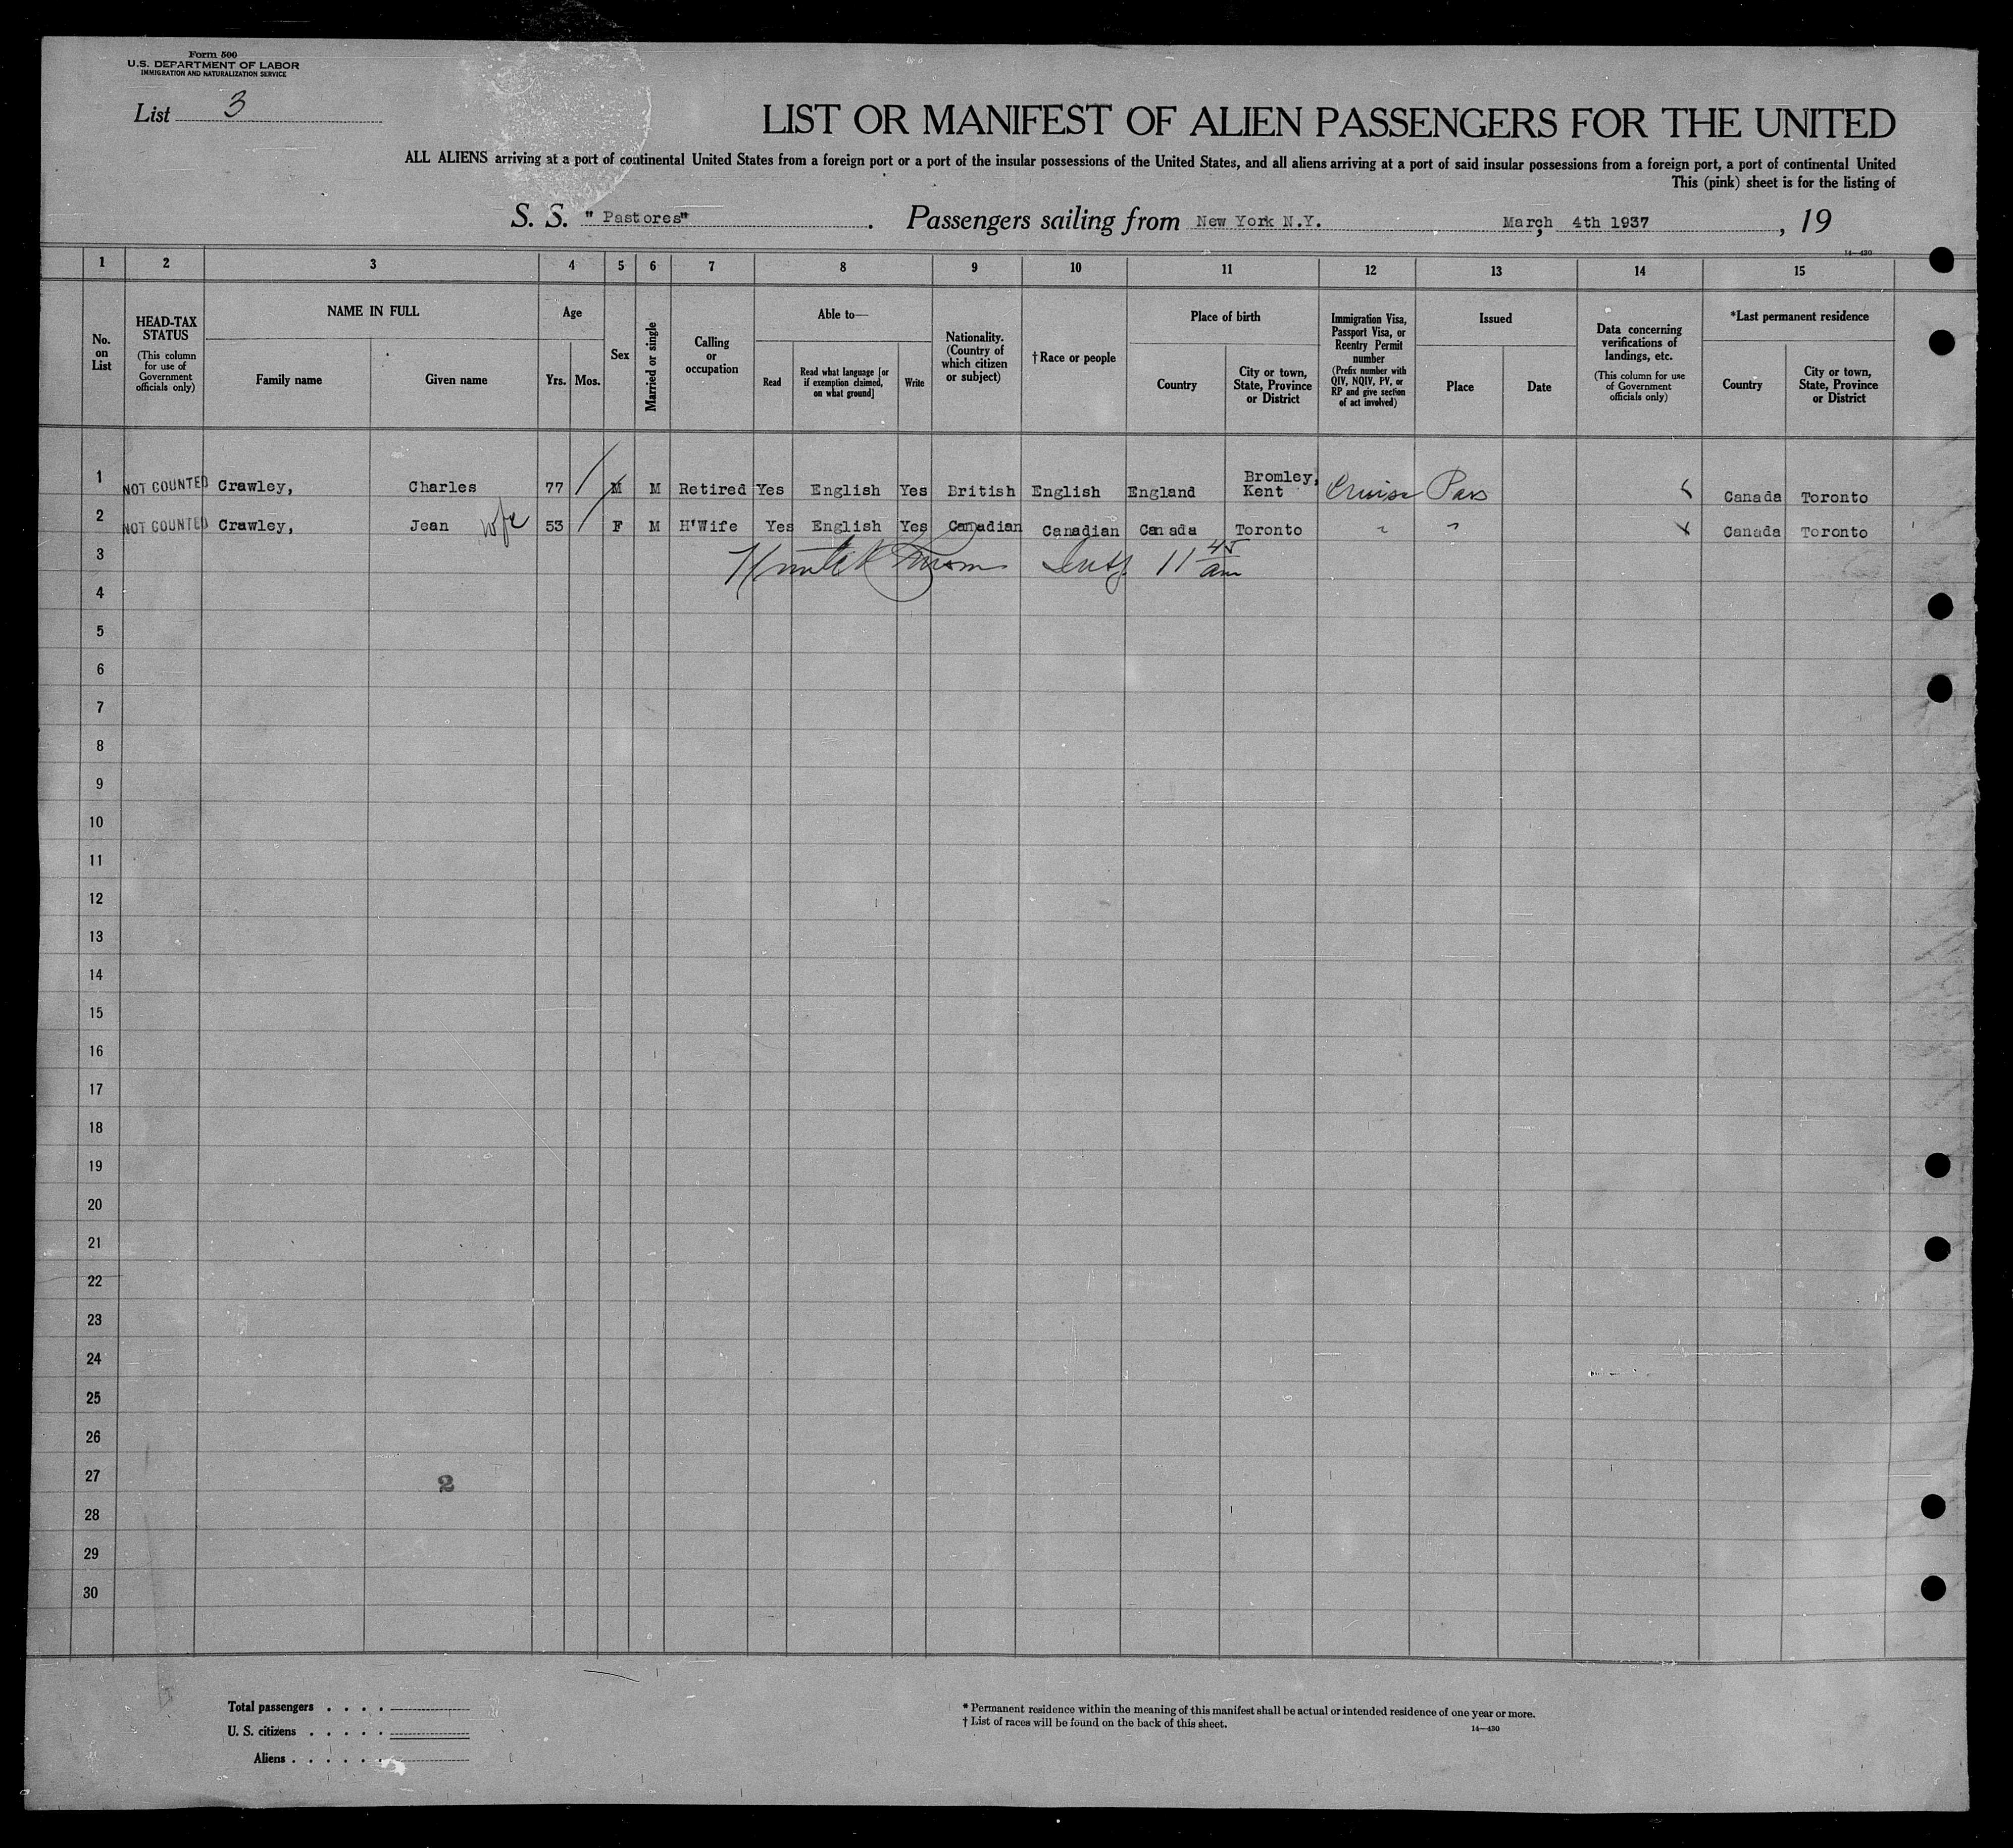 Form 500
U.S. DEPARTMENT OF LABOR
IMMIGRATION AND NATURALIZATION SERVICE
List 3
LIST OR MANIFEST OF ALIEN PASSENGERS FOR THE UNITED
ALL ALIENS arriving at a port of continental United States from a foreign port or a port of the insular possessions of the United States, and all aliens arriving at a port of said insular possessions from a foreign port, a port of continental United
This (pink) sheet is for the listing of
S. S. "Pastores". Passengers sailing from New York N.Y. March, 4th 1937, 19
14—430
1 2 3 4 5 6 7 8 9 10 11 12 13 14 15
No. on List
HEAD-TAX STATUS (This column for use of Government officials only)
NAME IN FULL
Family name
Given name
Age
Yrs.
Mos.
Sex
Married or single
Calling or occupation
Able to—
Read
Read what language [or if exemption claimed, on what ground]
Write
Nationality. (Country of which citizen or subject)
†Race or people
Place of birth
Country
City or town, State, Province or District
Immigration Visa, Passport Visa, or Reentry Permit number (Prefix number with QIV, NQIV, PV, or RP and give section of act involved)
Issued
Place
Date
Data concerning verifications of landings, etc. (This column for use of Government officials only)
*Last permanent residence
Country
City or town, State, Province or District
1 NOT COUNTED Crawley, Charles 77 M M Retired Yes English Yes British English England Bromley, Kent Cruise Pass Canada Toronto
2 NOT COUNTED Crawley, Jean wife 53 F M H'Wife Yes English Yes Canadian Canadian Canada Toronto " " Canada Toronto
3 11 45 am
4
5
6
7
8
9
10
11
12
13
14
15
16
17
18
19
20
21
22
23
24
25
26
27 2
28
29
30
Total passengers . . . .
U. S. citizens . . . . .
Aliens . . . . . .
* Permanent residence within the meaning of this manifest shall be actual or intended residence of one year or more.
† List of races will be found on the back of this sheet.
14—430